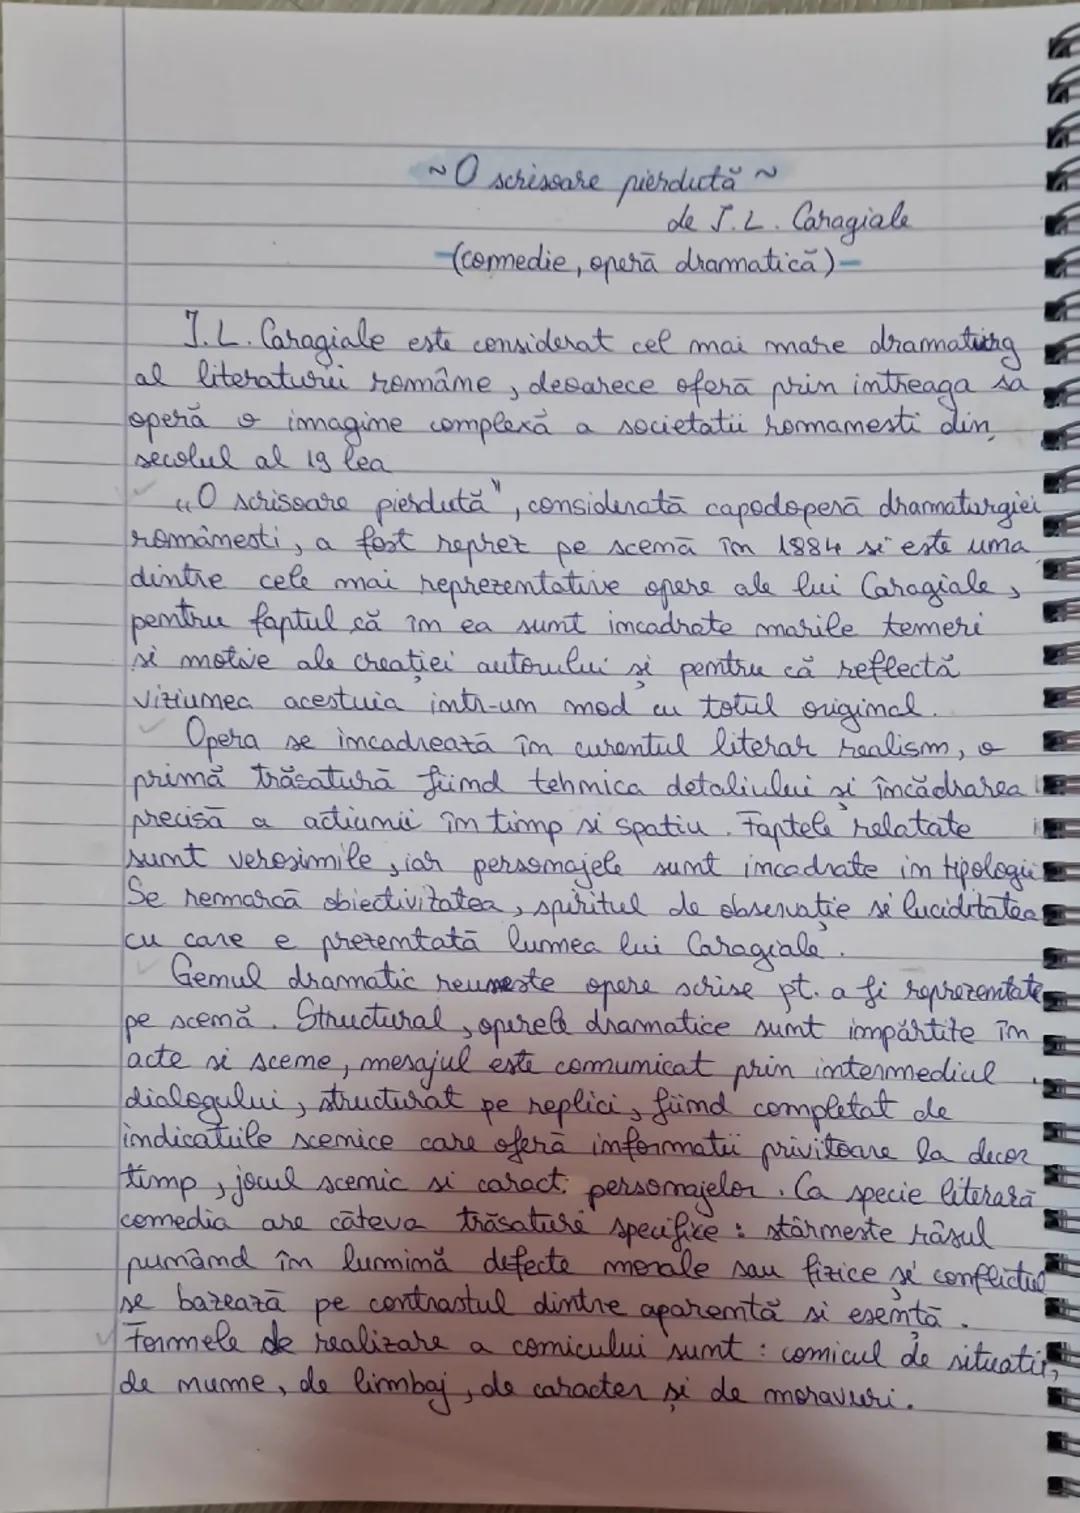 ~ O scrisoare pierdută ~
de I.L. Caragiale
-(comedie, operă dramatică)-
I.L. Caragiale este considerat cel mai mare dramaturg
al literaturii române, deoarece oferă prin intreaga sa
operă o imagine complexă a societatii romanesti din
secolul al 19 lea
„O scrisoare pierdută”, considerată capodoperă dramaturgiei
românesti, a fost reprez pe scenă în 1884 si este una
dintre cele mai reprezentative opere ale lui Caragiale,
pentru faptul că în ea sunt incadrate marile temeri
si motive ale creației autorului și pentru că reflectă
viziunea acestuia intr-un mod cu totul original.
Opera se incadrează în curentul literar realism, o
primă trăsatură fiind tehnica detaliului si încădrarea
precisă a actiunii în timp si spatiu. Faptele relatate
sunt verosimile, iar personajele sunt incadrate in tipologii
Se remarcă obiectivitatea, spiritul de observație si luciditatea
cu care e prezentată lumea lui Caragiale.
Genul dramatic reuneste opere scrise pt. a fi reprezentate
pe scenă. Structural, operele dramatice sunt impărtite în
acte si scene, mesajul este comunicat prin intermediul
dialogului, structurat pe replici, fiind completat de
indicatiile scenice care oferă informatii privitoare la decor
timp, jocul scenic si caract. personajelor. Ca specie literară
comedia are câteva trăsature specifice: stârneste râsul
punând în lumină defecte morale sau fizice și conflictul
se bazează pe contrastul dintre aparentă si esență.
Formele de realizare a comicului sunt: comicul de situatii,
de nume, de limbaj, de caracter și de moravuri.